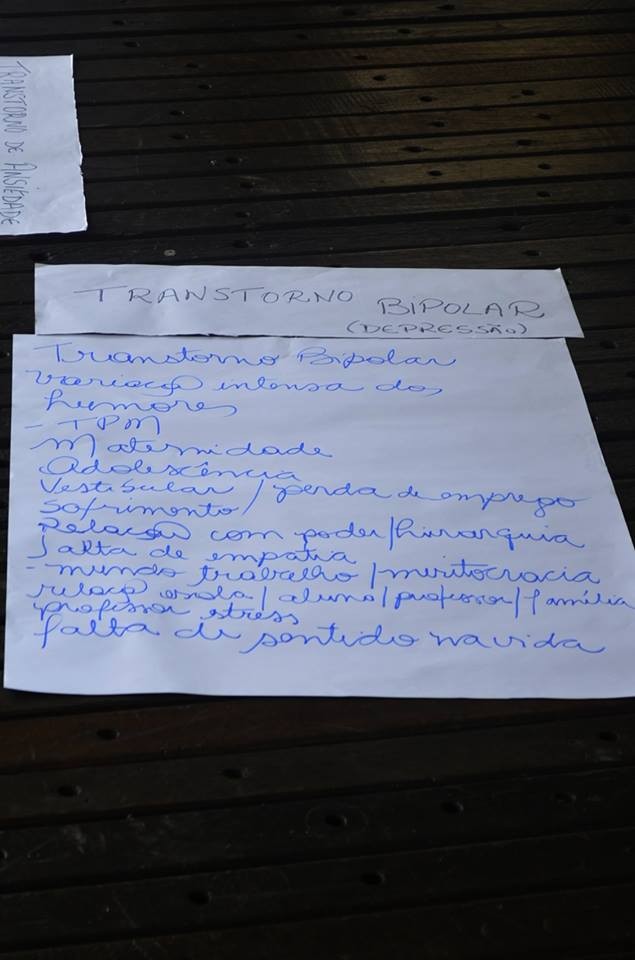 TRANSTORNO DE ANSIEDADE
TRANSTORNO BIPOLAR
(DEPRESSÃO)
Transtorno Bipolar
variação intensa dos
humores
- TPM
Maternidade
Adolescência
Vestibular / perda de emprego
sofrimento
Relação com poder/hierarquia
falta de empatia
- mundo trabalho / meritocracia
relaçõ escola / aluno / professor / família
professor stress
falta de sentido na vida